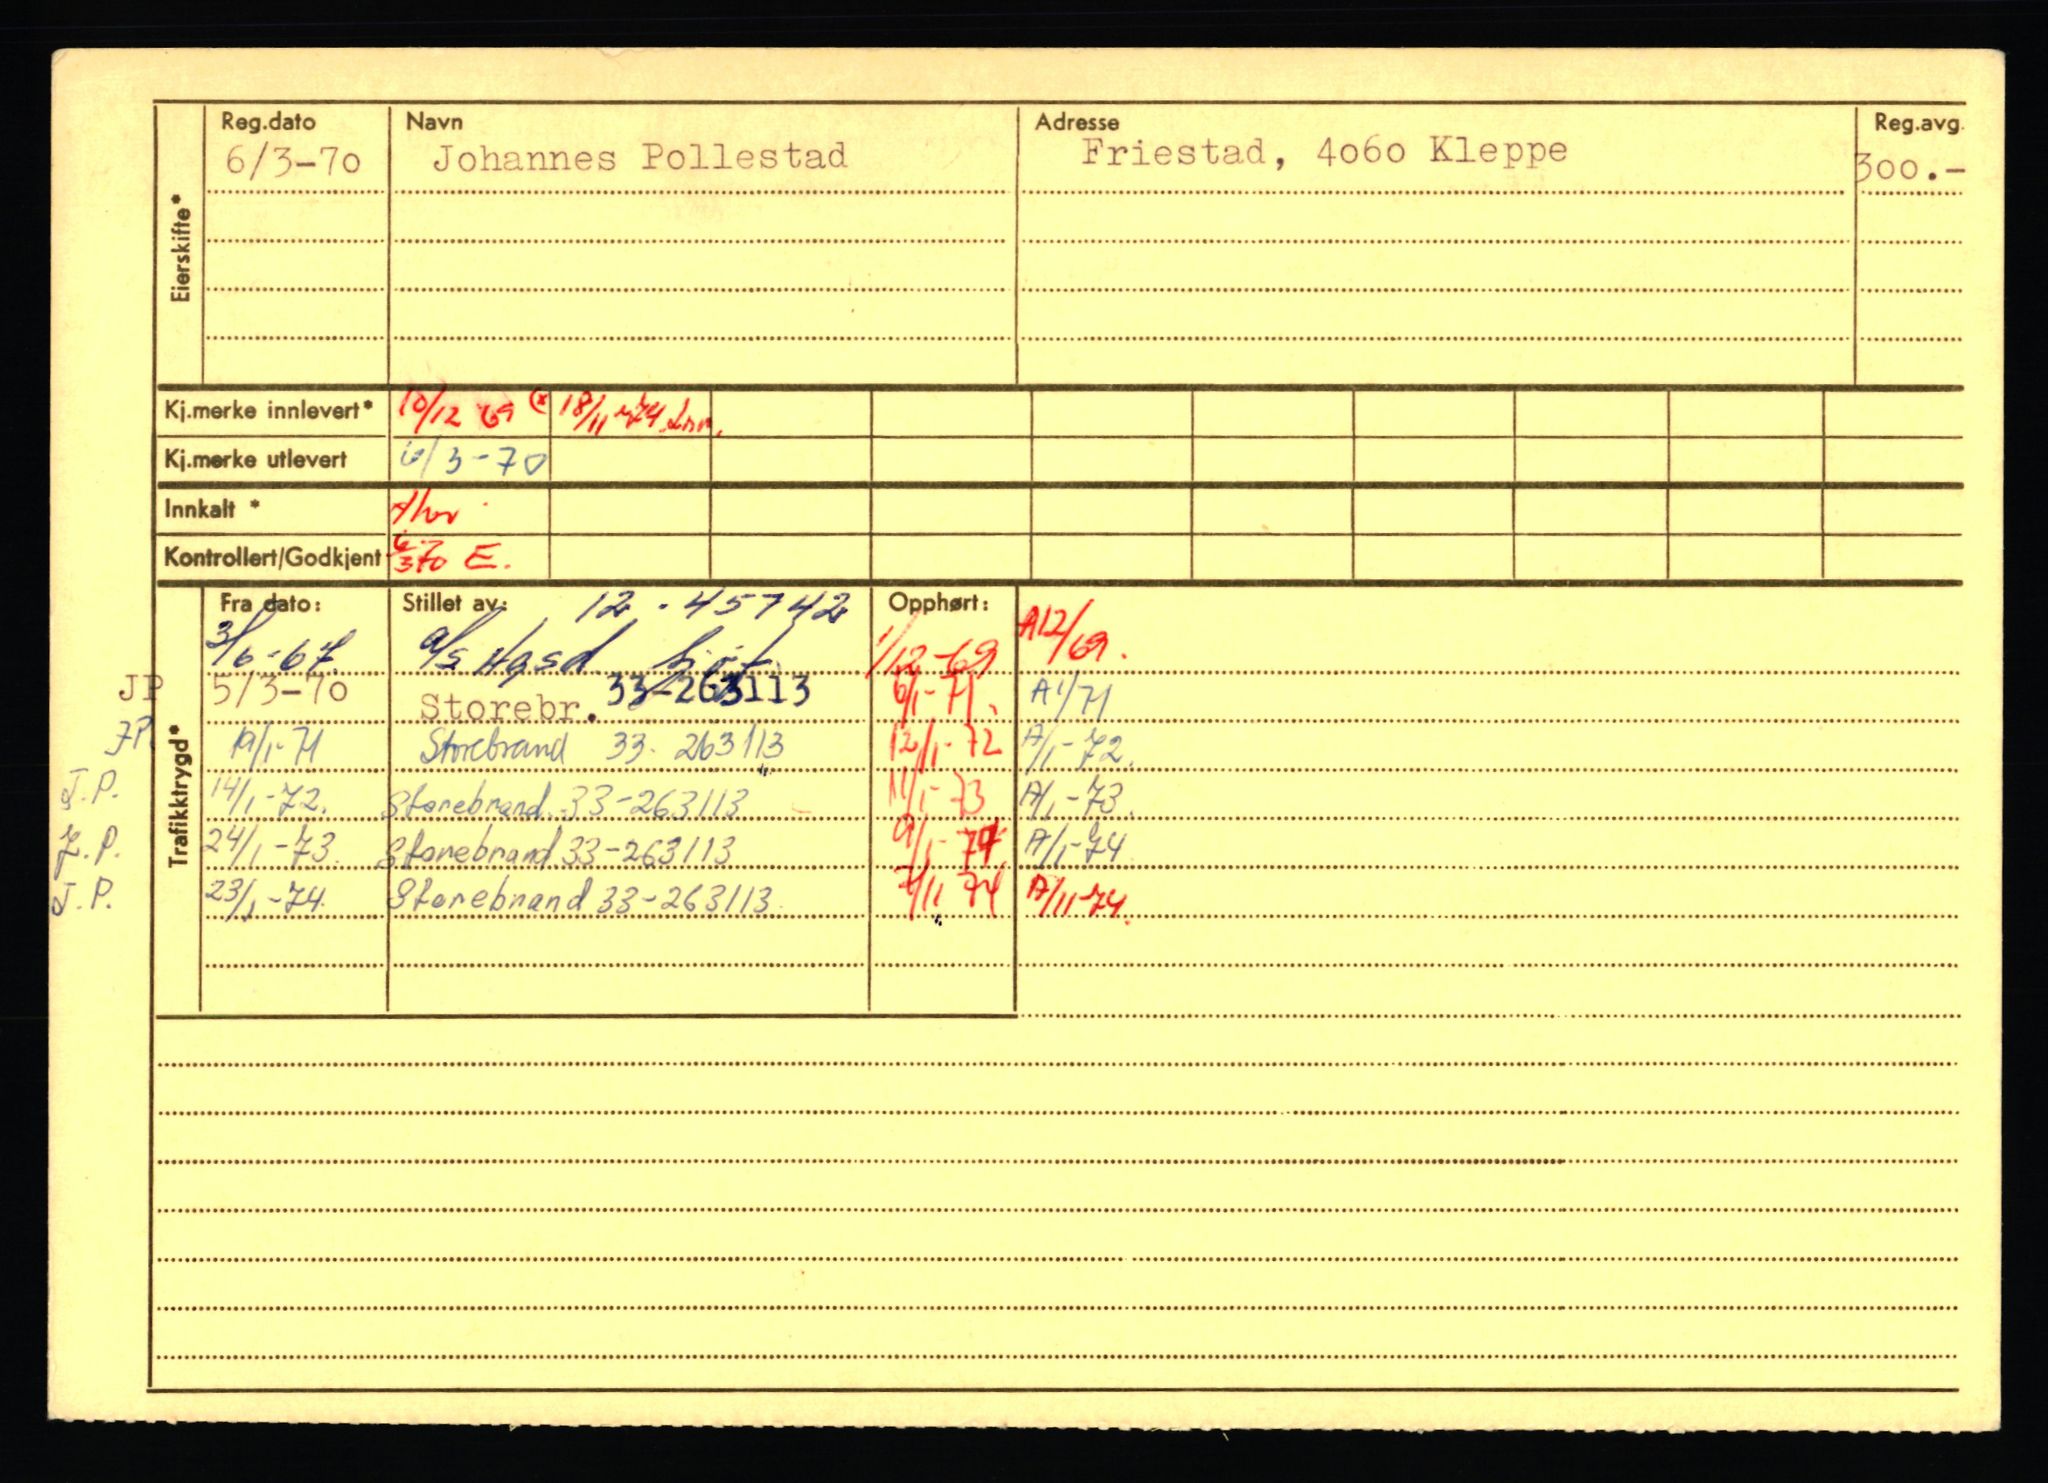 Reg.dato Navn Adresse Reg.avg.
6/3-70 Johannes Pollestad Friestad, 4060 Kleppe 300.-
Eierskifte*
Kj.merke innlevert* 10/12 69 (x 18/11-74
Kj.merke utlevert 6/3-70
Innkalt *
Kontrollert/Godkjent 6/3 70 E.
Trafikktrygd*
Fra dato: Stillet av: 12-45742 Opphørt:
3/6-67 a/s 1/12-69 A12/69.
JP 5/3-70 Storebr. 33-263113 6/1-71. A1/71
JP. 19/1-71 Storebrand 33-263113 12/1-72 A/1-72.
J.P. 14/1-72. Storebrand 33-263113 11/1-73 A/1-73.
J.P. 24/1-73. Storebrand 33-263113 9/1-74 A/1-74
J.P. 23/1-74. Storebrand 33-263113 7/11 74 A/11-74.